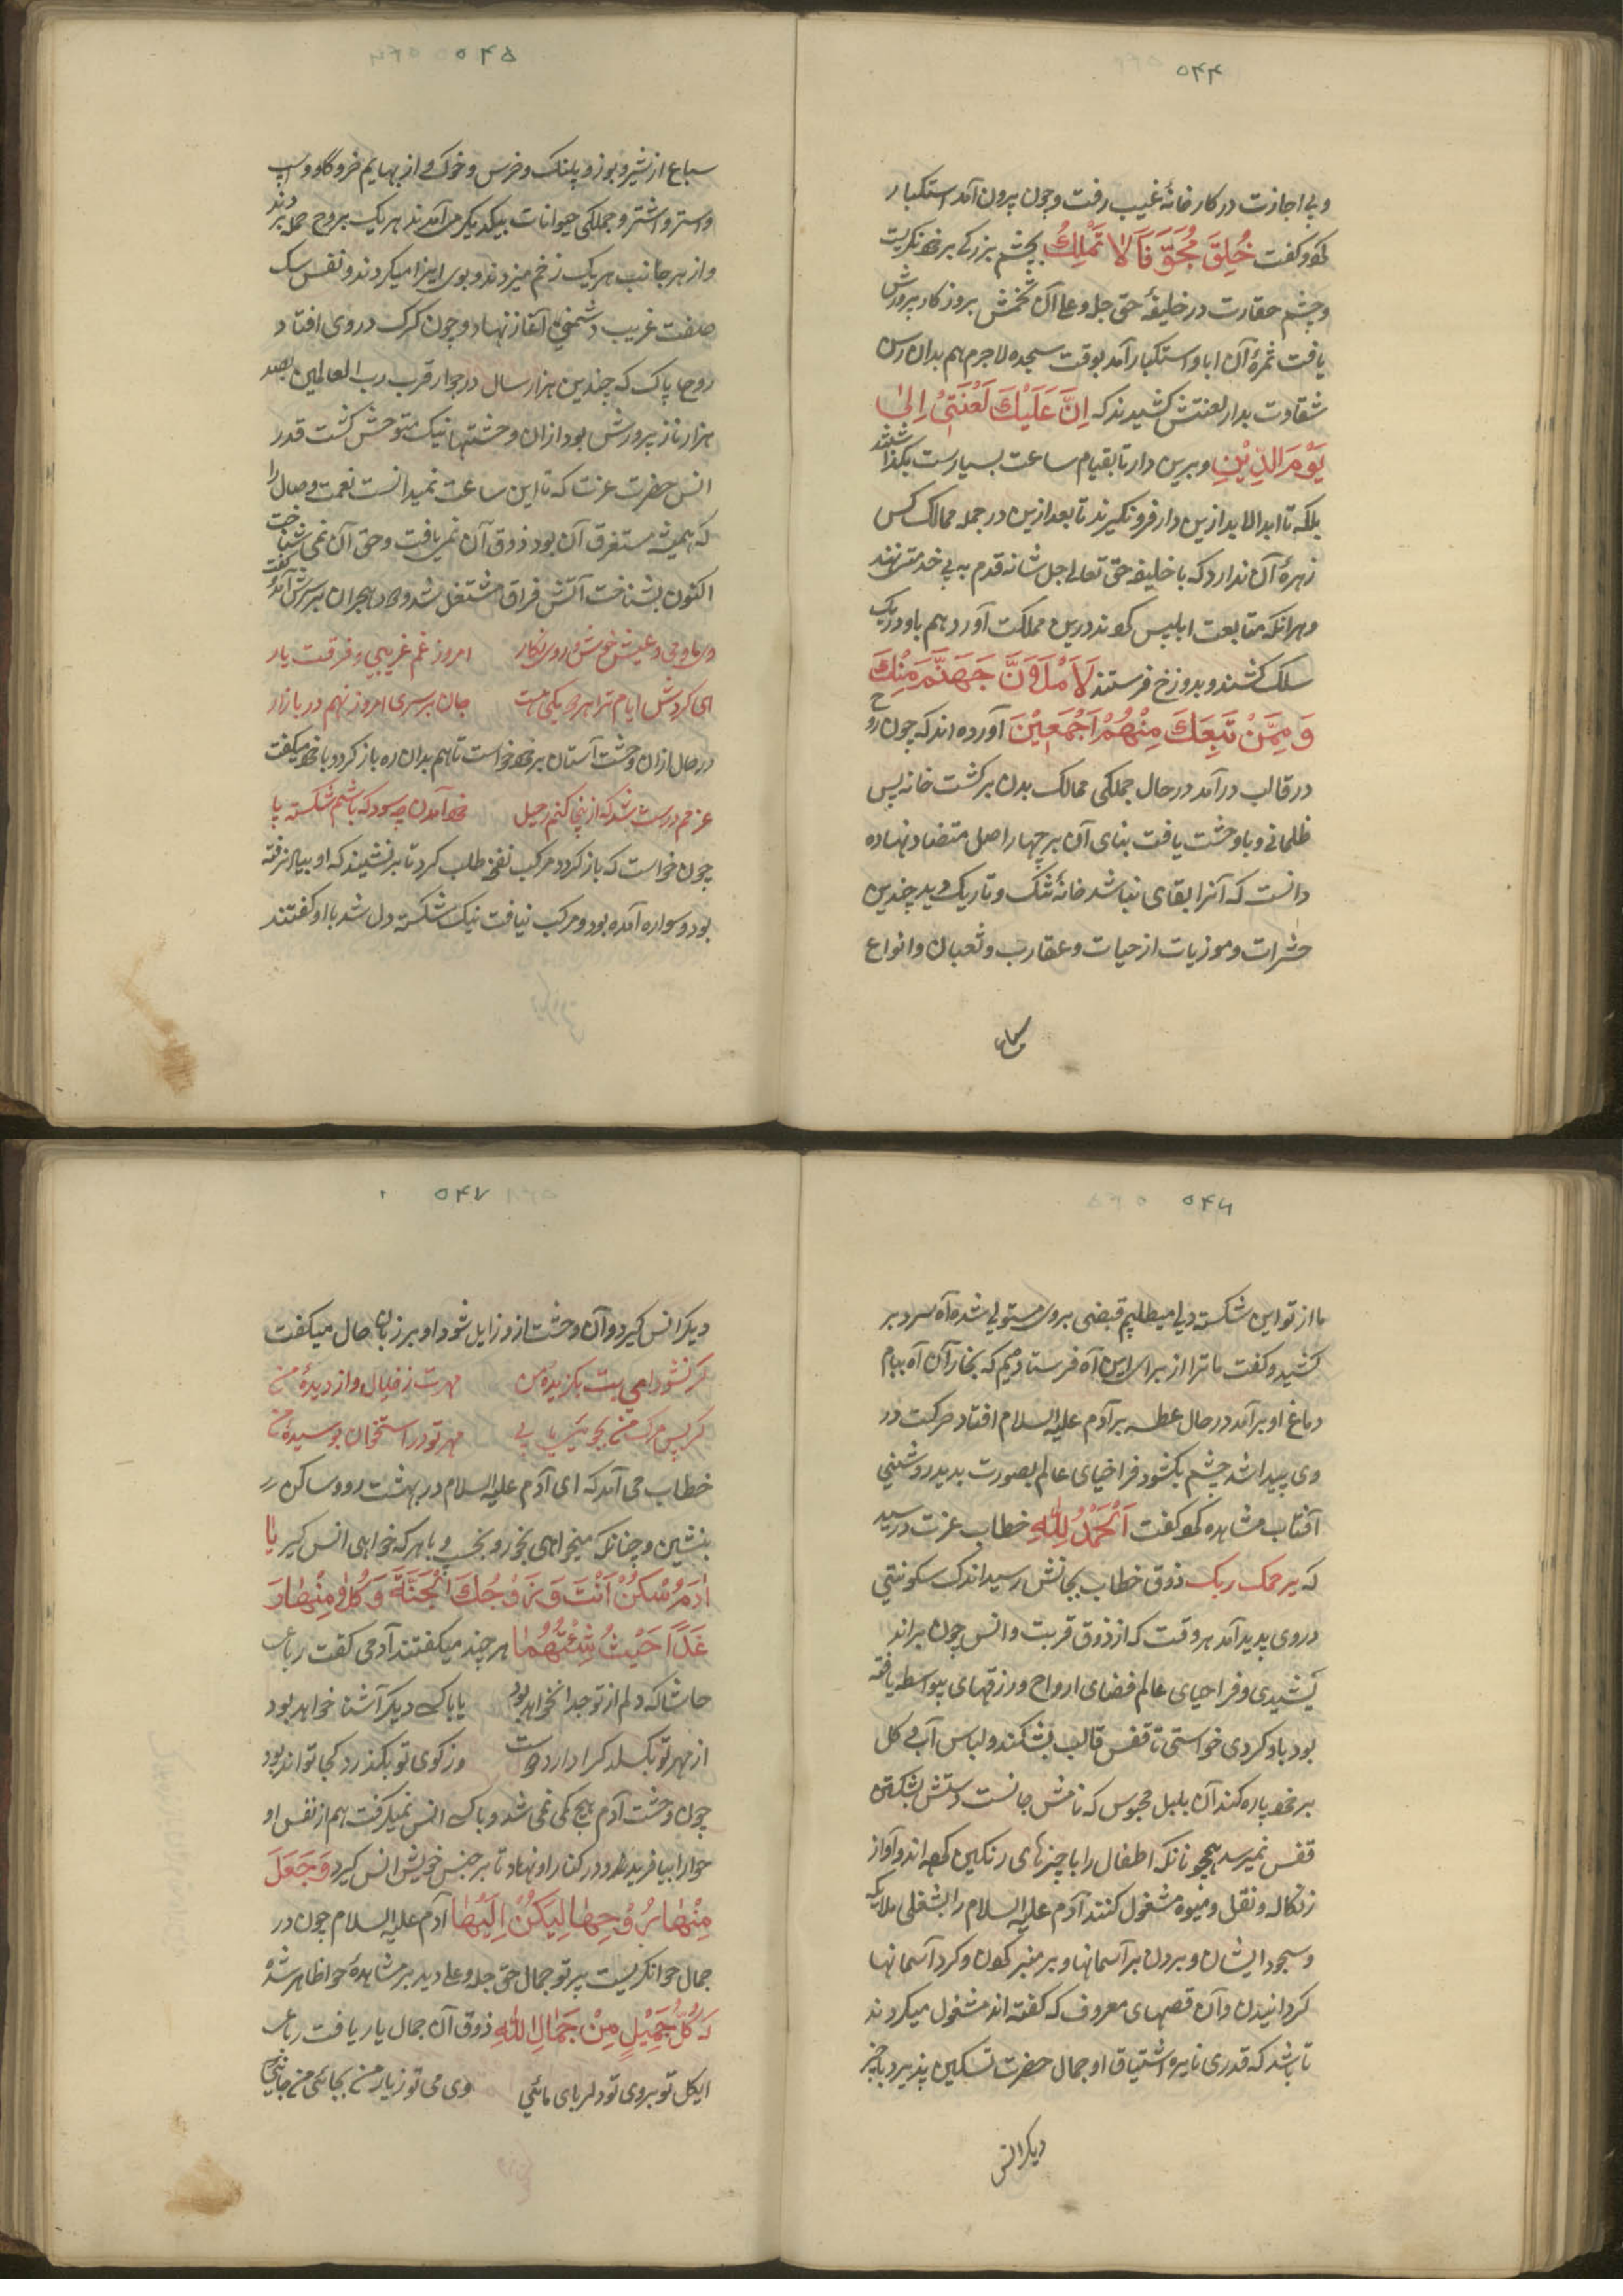 ۵۴۴
وبی اجازت در کارخانۀ غیب رفت وچون بیرون آمد استکبار
کرد وکفت خُلِقَ مُجَوَّفَاً لَا تَمْلِكُ بچشم بزرکی بر خود نکریست
وچشم حقارت در خلیفۀ حق جل وعلا آن تخمش بروزکار پرورش
یافت ثمرۀ آن ابا واستکبار آمد بوقت سجده لاجرم هم بدان رسن
شقاوت بدار لعنتش کشیدند که اِنَّ عَلَيْكَ لَعْنَتِيْ اِلىٰ
يَوْمِ الدِّيْنِ وبرین دار تا بقیام ساعت بسیارست بگذاشتند
بلکه تا ابدالابد ازین دار فرو نکیرند تا بعد ازین در جمله ممالک کس
زهرۀ آن ندارد که با خلیفه حق تعالی جل شانه قدم به بی خدمتی نهند
وهرانکه متابعت ابلیس کوند درین مملکت آورد هم باو در یک
سلک کشند وبدوزخ فرستند لَاَمْلَاَنَّ جَهَنَّمَ مِنْكَ
وَ مِمَّنْ تَبِعَكَ مِنْهُمْ اَجْمَعِيْنَ آورده اند که چون روح
در قالب درآمد در حال جملکی ممالک بدن برکشت خانه پس
ظلمانی وبا وحشت یافت بنای آن بر چهار اصل متضاد نهاده
دانست که آنرا بقای نباشد خانۀ تنک وتاریک دید چندین
حشرات وموزیات از حیات وعقارب وثعبان وانواع
سباع
۵۴۵
سباع از شیر وبوز وپلنک وخرس وخوک واز بهایم خر وکاو واسپ
واستر واشتر وجملکی حیوانات بیکدیکر می آمدند هر یک بروح حمله بردند
واز هر جانب هر یک زخم میزدند وبوی ایزا میکردند ونفس سک
صفت غریب دشمنی آغاز نهاد وچون کرک در وی افتاد
روح پاک که چندین هزار سال در جوار قرب رب العالمین بصد
هزار ناز پرورش بود ازان وحشتها نیک متوحش کشت قدر
انس حضرت عزت که تا این ساعت نمیدانست نعمت وصال را
که همیشه مستغرق آن بود ذوق آن نمی یافت وحق آن نمی شناخت
اکنون بشناخت آتش فراق مشتغل شد ودود هجران بر سرش آمد کفت
دی ما ومی وعیش خوش وروی نکار امروز غم غریبی وفرقت یار
ای کردش ایام ترا هر دو یکیست جان بر سر امروز نهم دی باز آر
در حال ازان وحشت آستان بر خود خواست تا هم بدان ره باز کردد با خود میکفت
عزم درست شد که ازینجا کنم رحیل خود آمدن چه سود که باشم شکسته پا
چون خواست که باز کردد مرکب نفخه طلب کرد تا برنشیند که او پیاده نرفته
بود وسواره آمده بود ومرکب نیافت نیک شکسته دل شد با او کفتند
۵۴۶
ما از تو این شکسته دلی میطلبیم قبضی بر وی مستولی شد وآه سرد بر
کشید وکفت ما ترا از برای این آه فرستاده ایم که بخار آن آه ببام
دماغ او برآمد در حال عطسه بر آدم علیه السلام افتاد حرکت در
وی پیدا شد چشم بکشود فراخیای عالم بصورت بدید روشنی
آفتاب مشاهده کرد کفت اَلْحَمْدُ لِلّٰهِ خطاب عزت در رسید
که یرحمک ربک ذوق خطاب بجانش رسید اندک سکونتی
در وی پدید آمد هر وقت که از ذوق قربت وانس چون براند
یشیدی وفراخیای عالم فضای ارواح ورزقهای بیواسطه یافته
بود یاد کردی خواستی تا قفس قالب بشکند ولباس آب وکل
بر خود پاره کند آن بلبل محبوس که نامش جانست دستش بشکستن
قفس نمیرسد همچونانکه اطفال را با چیزهای رنکین کهه اند وآواز
زنکاله ونقل ومیوه مشغول کنند آدم علیه السلام را بشغلی ملایکه
وسجود ایشان وبردن بر آسمانها وبر منبر کردن وکرد آسمانها
کردانیدن وآن قصهای معروف که کفته اند مشغول میکردند
تا باشد که قدری نایره اشتیاق او جمال حضرت تسکین پذیرد با چیز
دیکر انس
۵۴۷
دیکر انس کیرد وآن وحشت از و زایل شود او بر زبان حال میکفت
نشود ای بت بکزیدۀ من مهرت ز خیال واز دیدۀ من
کر پس مرک من بجوئی یابی مهر تو در استخوان بوسیدۀ من
خطاب می آمد که ای آدم علیه السلام در بهشت رو وساکن
بنشین وچنانکه میخواهی بخور وبخسپ وبا هر که خواهی انس کیر یَا
اٰدَمُ اسْكُنْ اَنْتَ وَ زَوْجُكَ الْجَنَّةَ وَ كُلَا مِنْهَا رَ
غَدًا حَيْثُ شِئْتُمَا هر چند میکفتند آدم می کفت رباعی
حاشا که دلم از تو جدا خواهد بود یا با کس دیکر آشنا خواهد بود
از مهر تو بکسلد کرا دارد دوست وز کوی تو بکذرد کجا تواند بود
چون وحشت آدم هیچ کم نمی شد وبا کس انس نمیکرفت هم از نفس او
حوا را بیافرید ودر کنار او نهاد تا بر جنس خویش انس کیرد وَ جَعَلَ
مِنْهَا زَوْجَهَا لِيَسْكُنَ اِلَيْهَا آدم علیه السلام چون در
جمال حوا نکریست پرتو جمال حق جل وعلا دید بر مشاهدۀ حوا ظاهر شد
که كُلُّ جَمِيْلٍ مِنْ جَمَالِ اللّٰهِ ذوق آن جمال باز یافت رباعی
ایکل تو بروی تو دلربای مائی وی می تو زیار من بجائی من